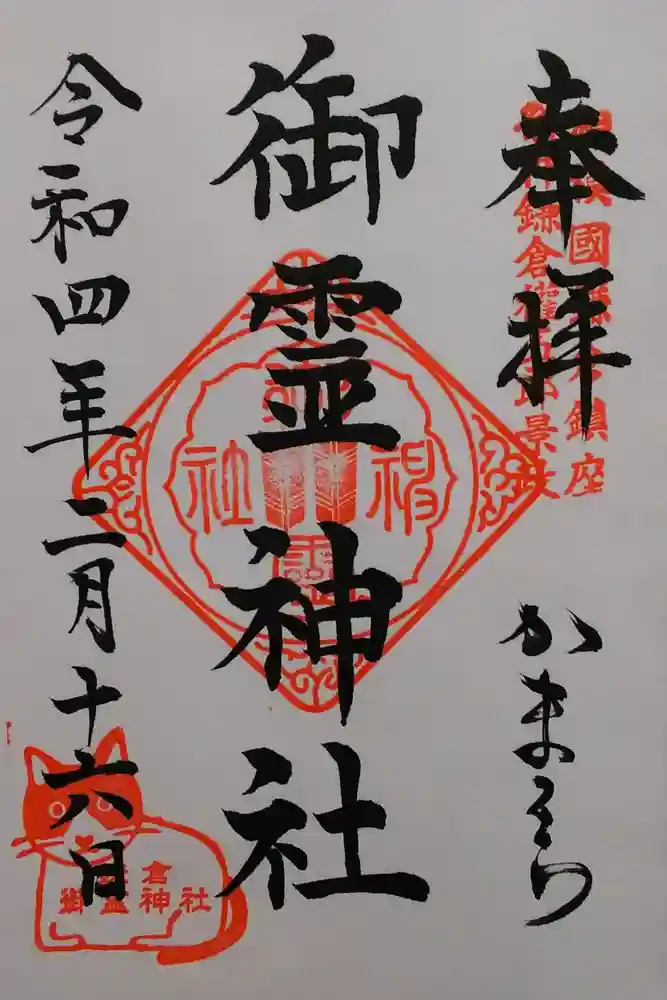 奉拝
かまくら
國 鎮座
鎌倉權 景政
御霊神社
神 社
令和四年二月十六日
倉
御霊神社